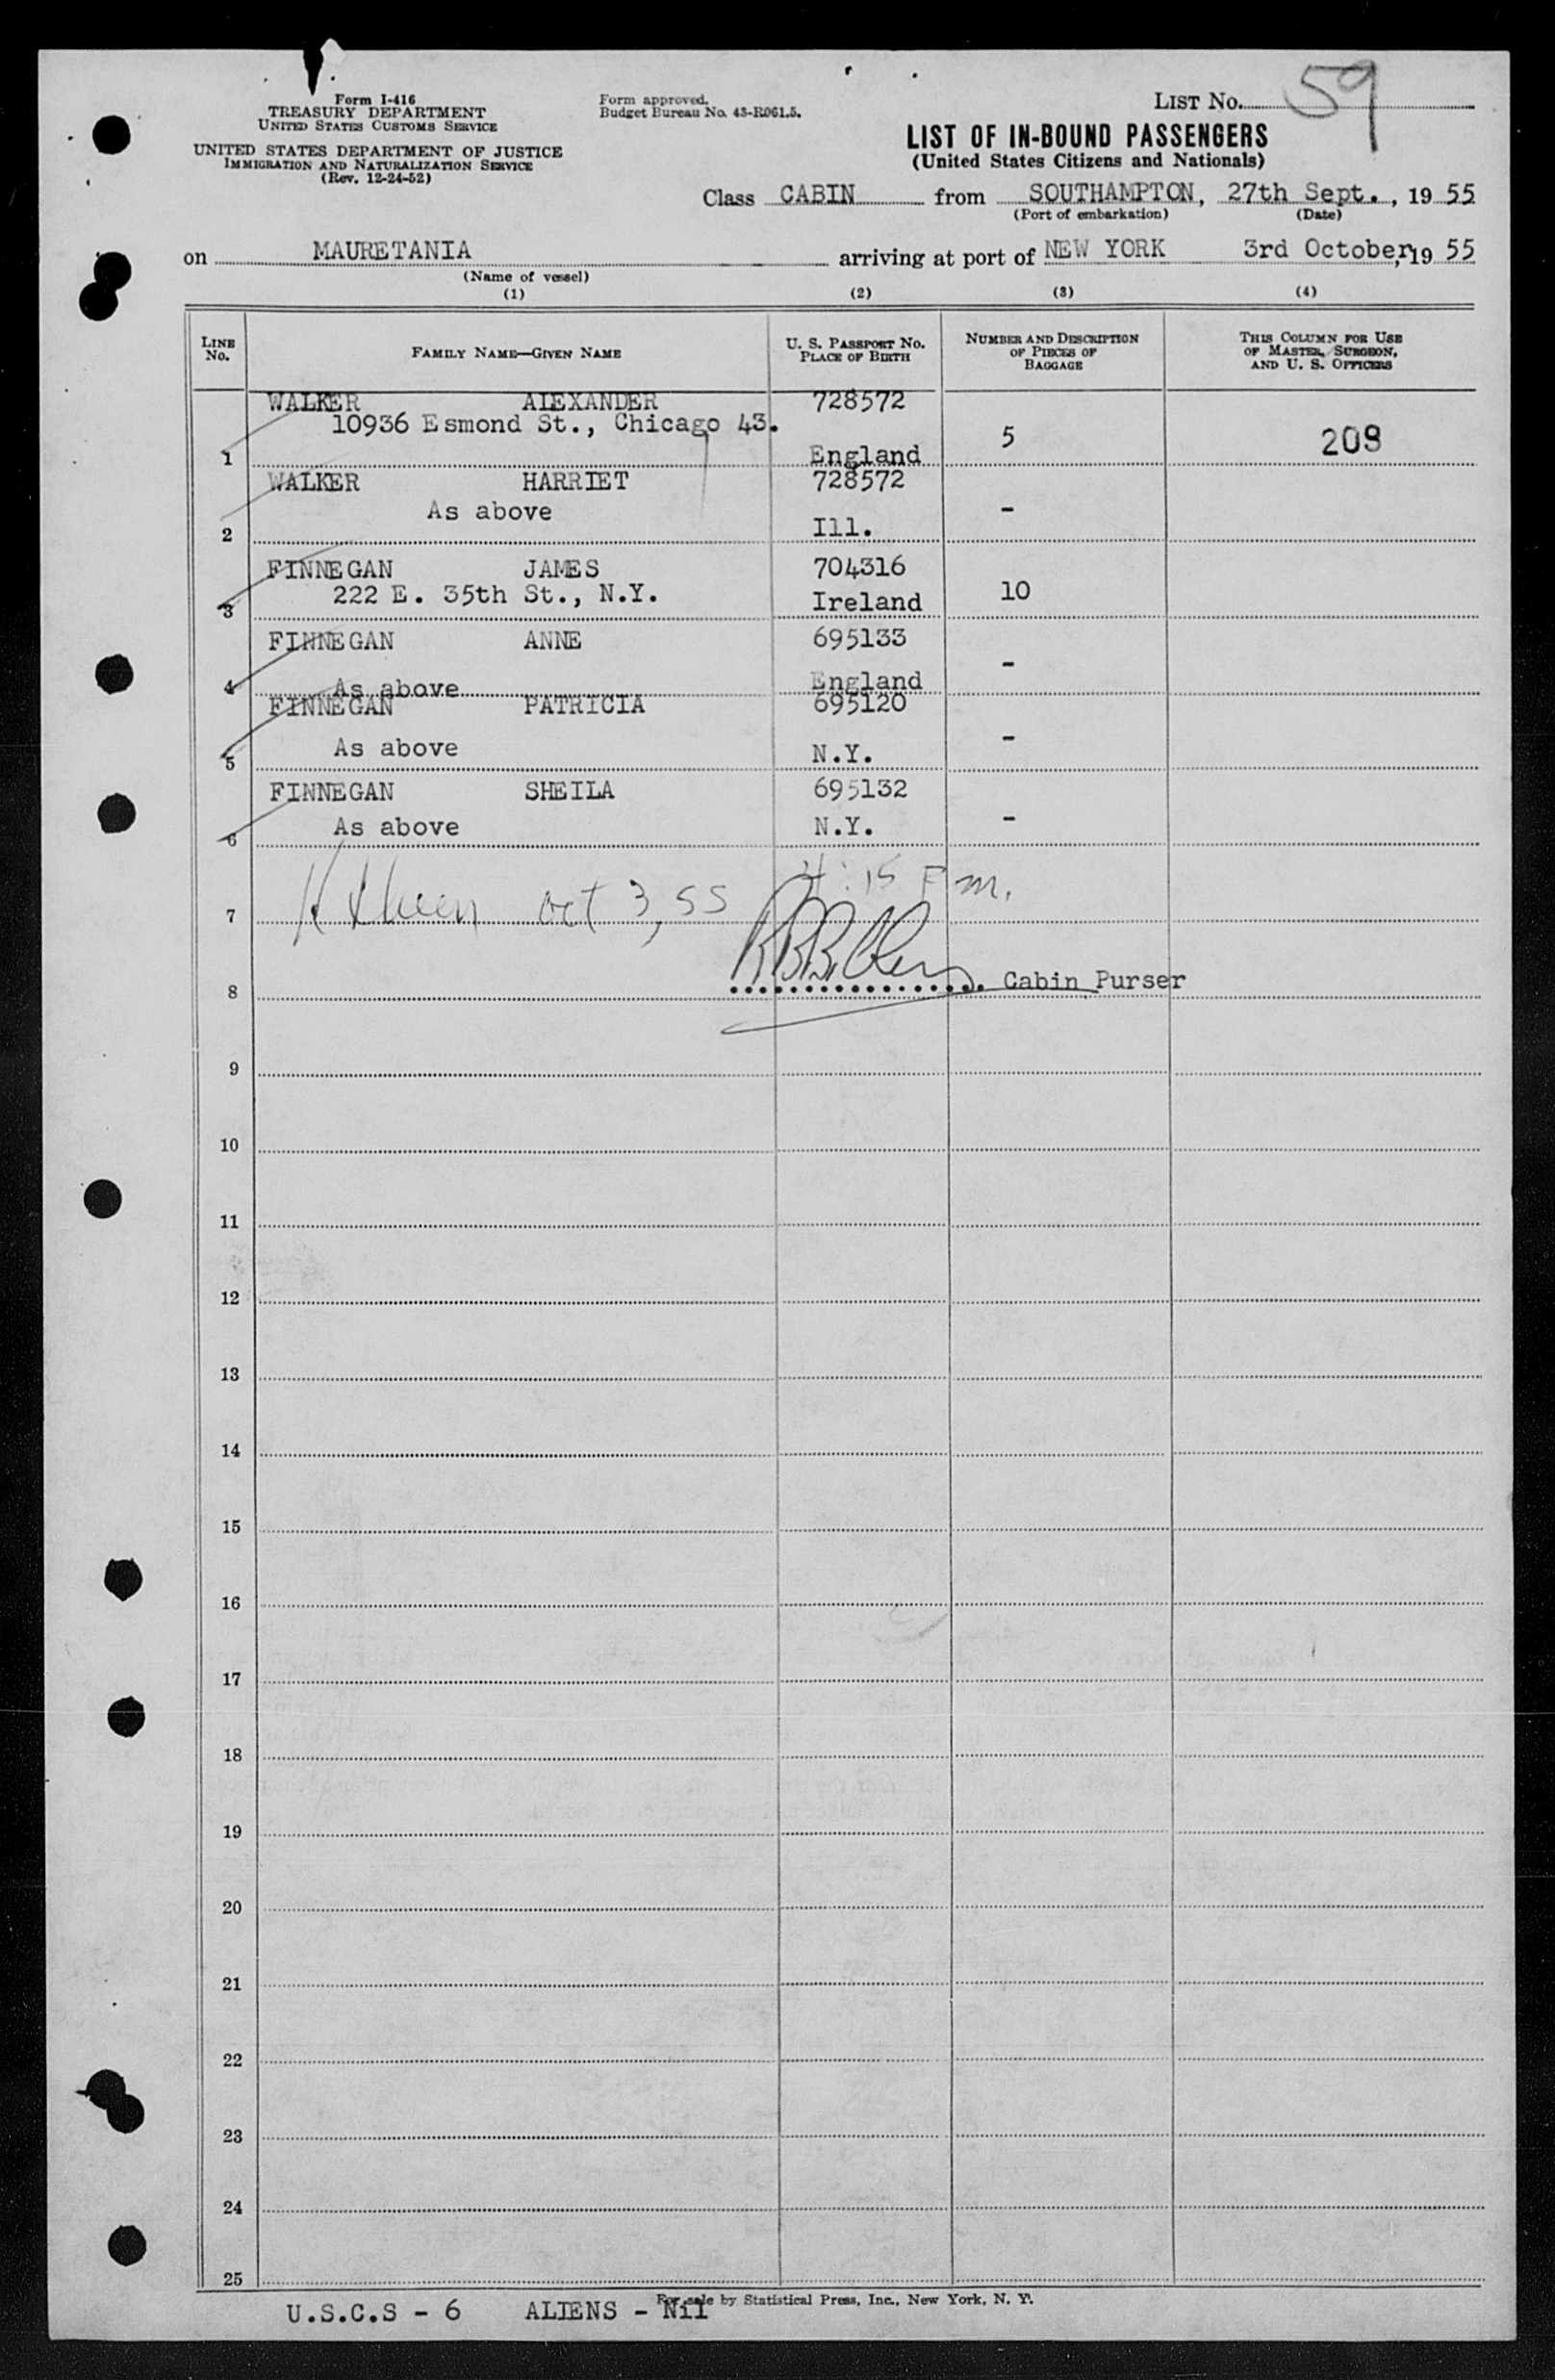 Form I-416
TREASURY DEPARTMENT
UNITED STATES CUSTOMS SERVICE
UNITED STATES DEPARTMENT OF JUSTICE
IMMIGRATION AND NATURALIZATION SERVICE
(Rev. 12-24-52)
Form approved.
Budget Bureau No. 43-R061.5.
LIST NO. 59
LIST OF IN-BOUND PASSENGERS
(United States Citizens and Nationals)
Class CABIN from SOUTHAMPTON, 27th Sept., 19 55
(Port of embarkation) (Date)
on MAURETANIA arriving at port of NEW YORK 3rd October, 19 55
(Name of vessel)
(1) (2) (3) (4)
LINE No. FAMILY NAME—GIVEN NAME U. S. PASSPORT NO. PLACE OF BIRTH NUMBER AND DESCRIPTION OF PIECES OF BAGGAGE THIS COLUMN FOR USE OF MASTER, SURGEON, AND U. S. OFFICERS
WALKER ALEXANDER 728572
10936 Esmond St., Chicago 43.
1 England 5 208
WALKER HARRIET 728572
As above -
2 Ill.
FINNEGAN JAMES 704316
222 E. 35th St., N.Y. 10
3 Ireland
FINNEGAN ANNE 695133
-
4 As above England
FINNEGAN PATRICIA 695120
As above -
5 N.Y.
FINNEGAN SHEILA 695132
As above N.Y. -
6
7 Oct 3, 55 4:15 P.m.
8 Cabin Purser
9
10
11
12
13
14
15
16
17
18
19
20
21
22
23
24
25
For sale by Statistical Press, Inc., New York, N. Y.
U.S.C.S - 6 ALIENS - Nil